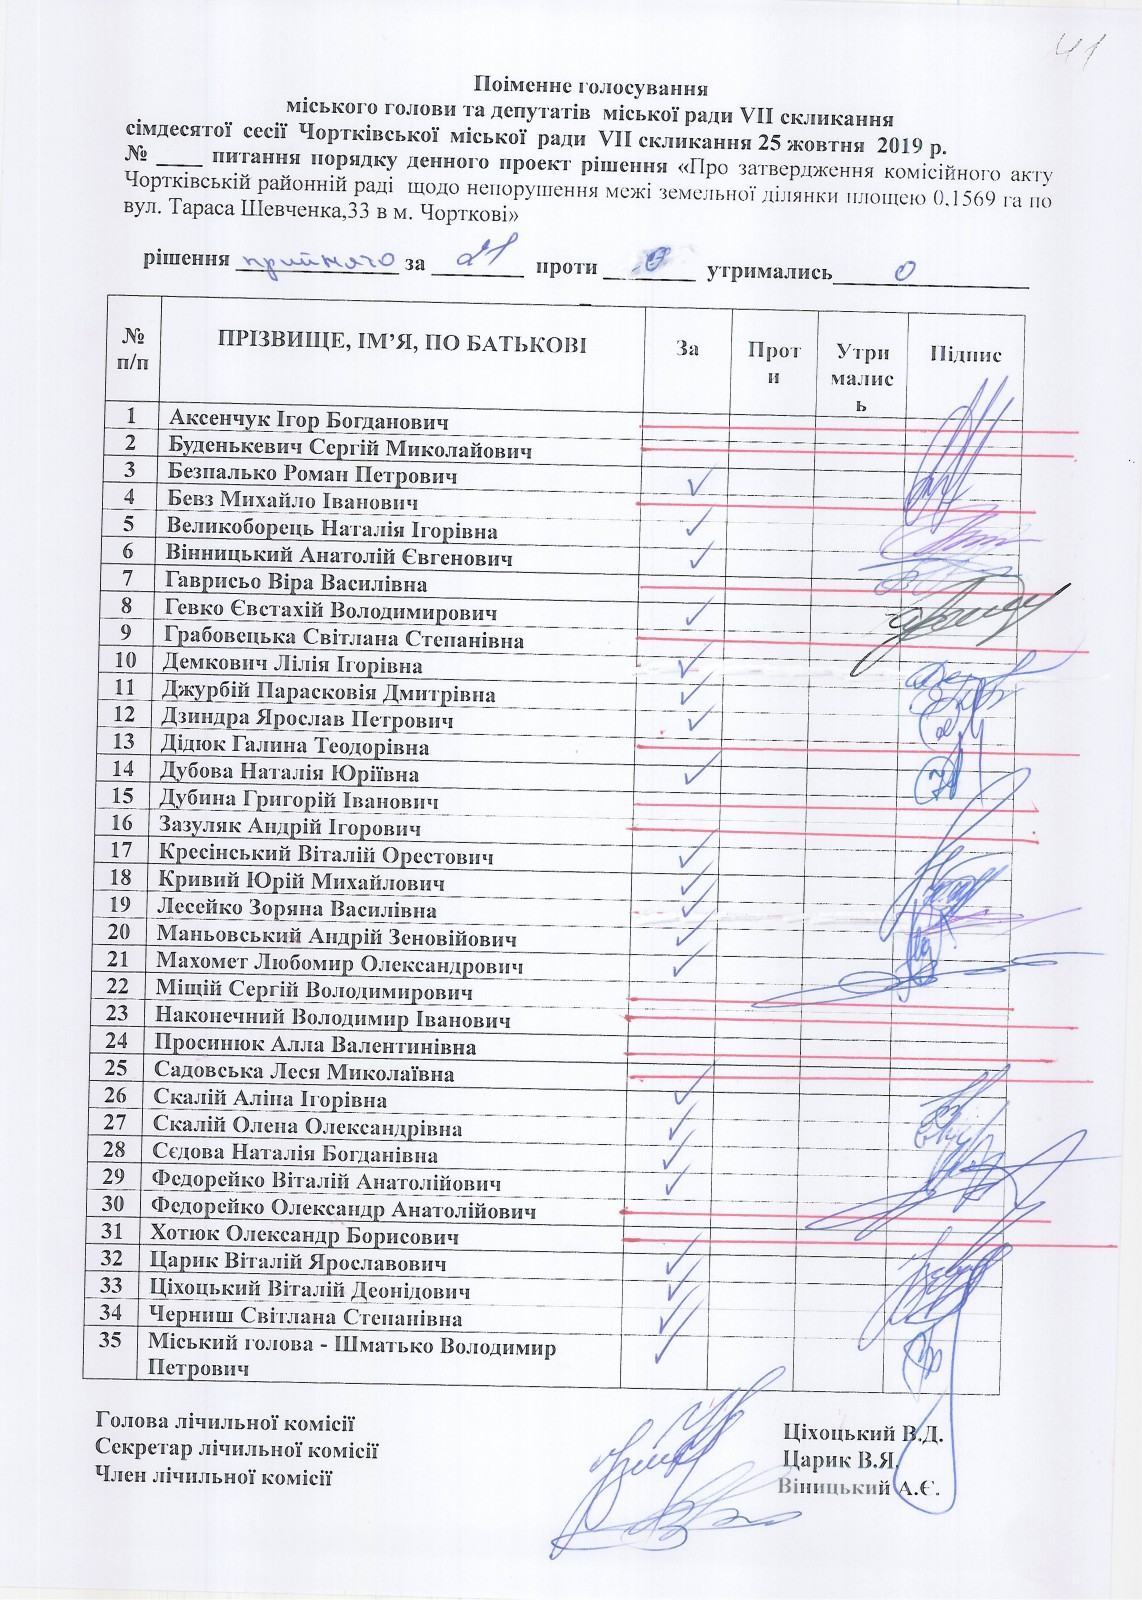 41
Поіменне голосування
міського голови та депутатів міської ради VII скликання
сімдесятої сесії Чортківської міської ради VII скликання 25 жовтня 2019 р.
№ ____ питання порядку денного проект рішення «Про затвердження комісійного акту
Чортківській районній раді щодо непорушення межі земельної ділянки площею 0,1569 га по
вул. Тараса Шевченка,33 в м. Чорткові»
рішення прийнято за 21 проти 0 утримались 0
№ п/п ПРІЗВИЩЕ, ІМ’Я, ПО БАТЬКОВІ За Проти Утрималис ь Підпис
1 Аксенчук Ігор Богданович
2 Буденькевич Сергій Миколайович
3 Безпалько Роман Петрович ✓
4 Бевз Михайло Іванович
5 Великоборець Наталія Ігорівна ✓
6 Вінницький Анатолій Євгенович ✓
7 Гаврисьо Віра Василівна
8 Гевко Євстахій Володимирович ✓
9 Грабовецька Світлана Степанівна
10 Демкович Лілія Ігорівна ✓
11 Джурбій Парасковія Дмитрівна ✓
12 Дзиндра Ярослав Петрович ✓
13 Дідюк Галина Теодорівна
14 Дубова Наталія Юріївна ✓
15 Дубина Григорій Іванович
16 Зазуляк Андрій Ігорович
17 Кресінський Віталій Орестович ✓
18 Кривий Юрій Михайлович ✓
19 Лесейко Зоряна Василівна ✓
20 Маньовський Андрій Зеновійович ✓
21 Махомет Любомир Олександрович ✓
22 Міщій Сергій Володимирович
23 Наконечний Володимир Іванович
24 Просинюк Алла Валентинівна
25 Садовська Леся Миколаївна
26 Скалій Аліна Ігорівна ✓
27 Скалій Олена Олександрівна ✓
28 Сєдова Наталія Богданівна ✓
29 Федорейко Віталій Анатолійович ✓
30 Федорейко Олександр Анатолійович
31 Хотюк Олександр Борисович
32 Царик Віталій Ярославович ✓
33 Ціхоцький Віталій Деонідович ✓
34 Черниш Світлана Степанівна ✓
35 Міський голова - Шматько Володимир ✓
Петрович
Голова лічильної комісії Ціхоцький В.Д.
Секретар лічильної комісії Царик В.Я.
Член лічильної комісії Віницький А.Є.